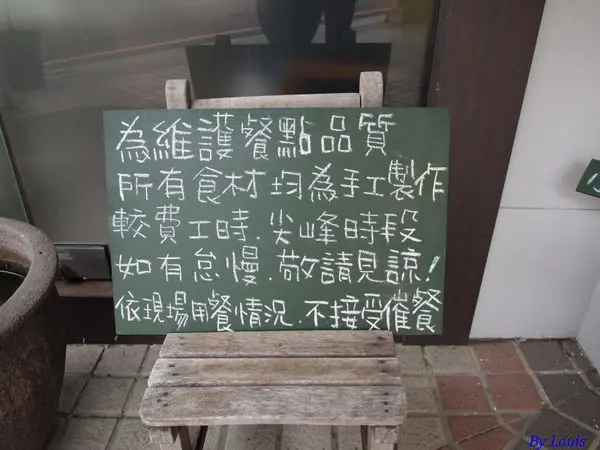 為維護餐點品質
所有食材均為手工製作
較費工時.尖峰時段
如有怠慢.敬請見諒!
依現場用餐情況.不接受催餐
By Louis